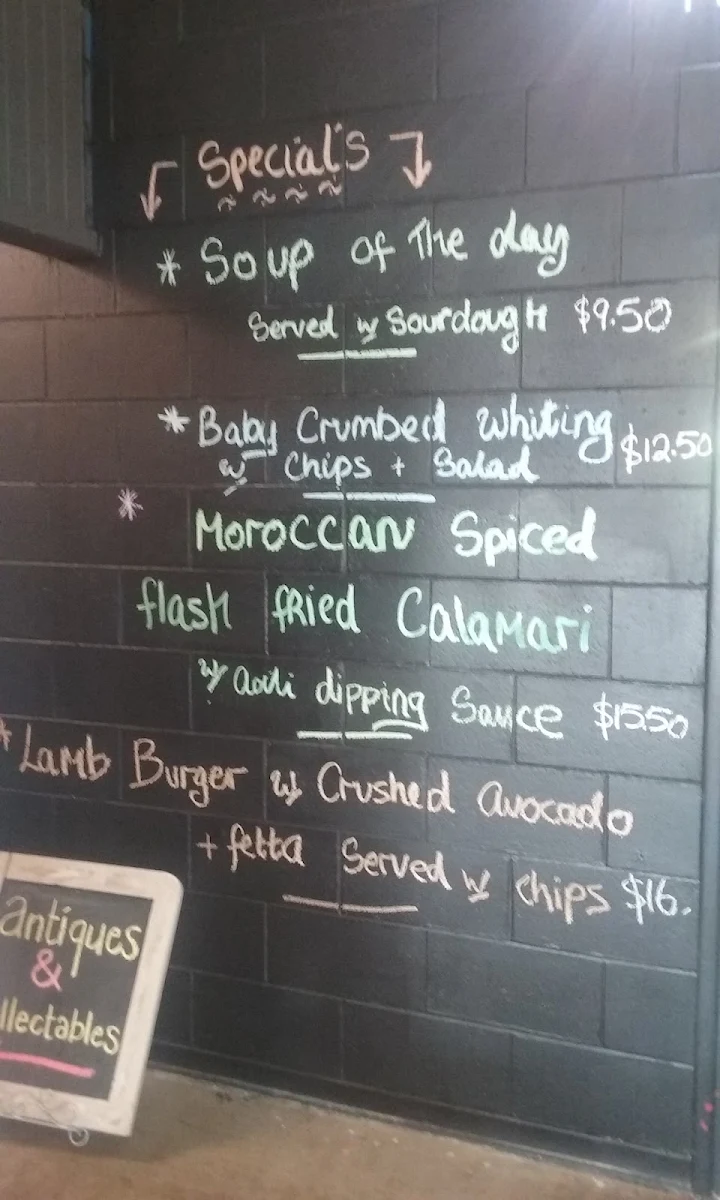 Special's
* Soup of The day
Served w Sourdough $9.50
* Baby Crumbed Whiting $12.50
w Chips + Salad
*
Moroccan Spiced
flash fried Calamari
w/ aoili dipping Sauce $15.50
* Lamb Burger w/ Crushed avocado
+ fetta Served w chips $16.
antiques
&
llectables